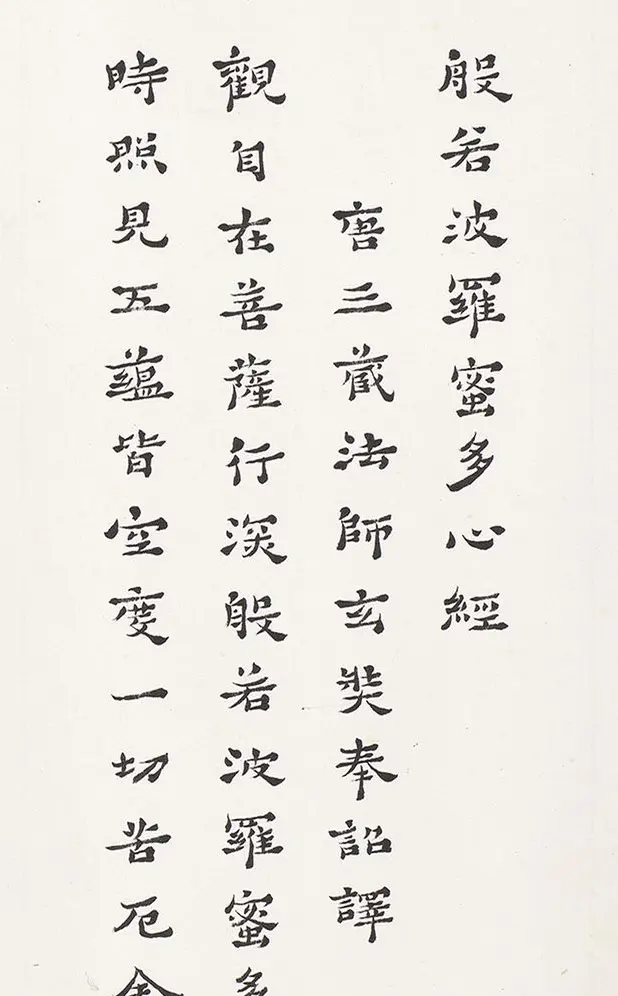 般若波羅蜜多心經
唐三藏法師玄奘奉詔譯
觀自在菩薩行深般若波羅蜜多
時照見五蘊皆空度一切苦厄舍